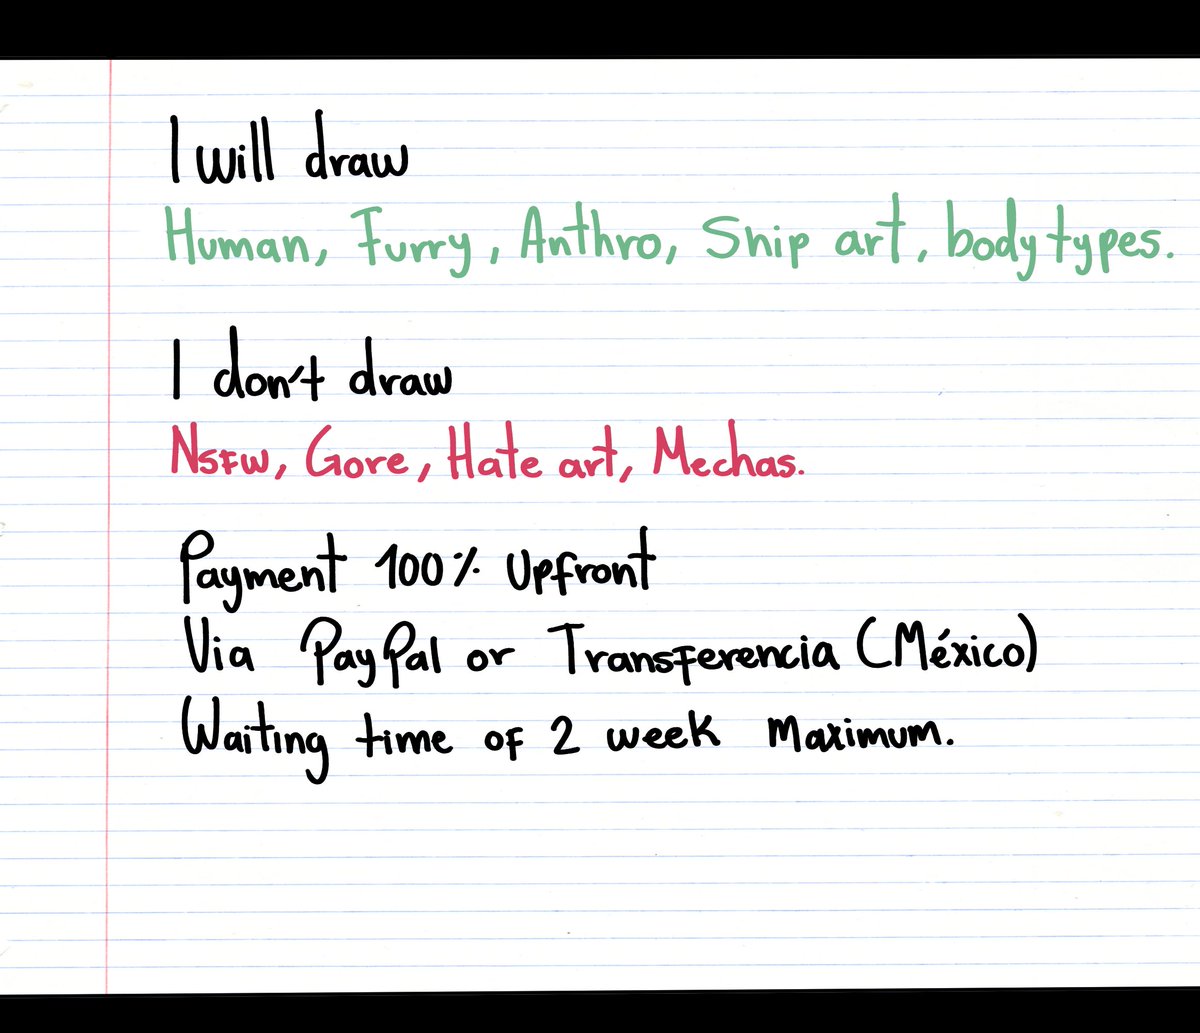 I will draw
Human, Furry, Anthro, Ship art, body types.
I don't draw
Nsfw, Gore, Hate art, Mechas.
Payment 100% Upfront
Via PayPal or Transferencia (México)
Waiting time of 2 week Maximum.